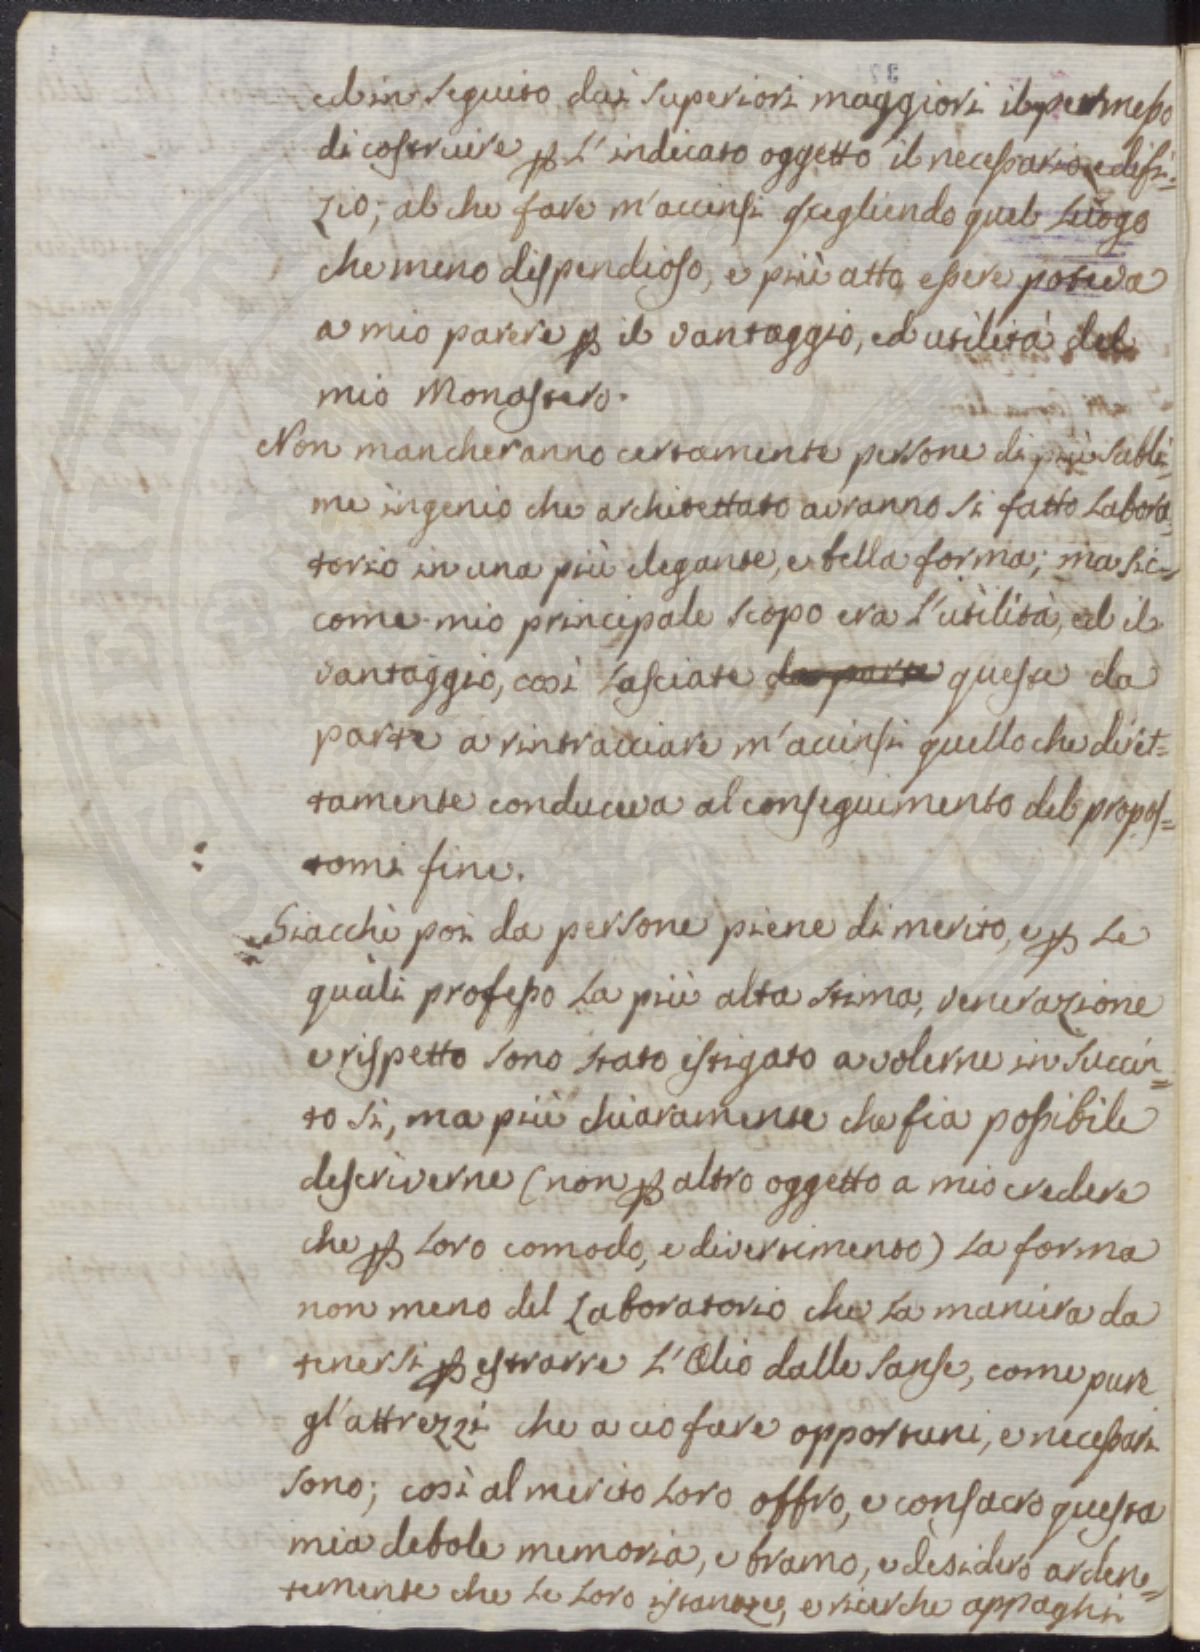 ed in seguito dai superiori maggiori il permesso
di costruire p l'indicato oggetto il necessario edifi-
zio; al che fare m'accinsi scegliendo quel luogo
che meno dispendioso, e più atto essere poteva
a mio parere p il vantaggio, ed utilità del
mio Monastero.
Non mancheranno certamente persone di più subli=
me ingenio che architettato avranno si fatto Labora
torio in una più elegante, e bella forma; ma sic=
come mio principale scopo era l'utilità, ed il
vantaggio, così lasciate da parte queste da
parte a rintracciare m'accinsi quello che diret=
tamente conduceva al conseguimento del propos=
tomi fine.
Giacchè poi da persone piene di merito, e p le
quali professo la più alta stima, venerazione
e rispetto sono stato istigato a volerne in succin=
to si, ma più chiaramente che fia possibile
descriverne (non p altro oggetto a mio credere
che p loro comodo, e divertimento) la forma
non meno del Laboratorio che la maniera da
tenersi p estrarre l'Olio dalle sanse, come pure
gl'attrezzi che a ciò fare opportuni, e necessari
sono; così al merito loro offro, e consacro questa
mia debole memoria, e bramo, e desidero arden=
temente che le loro istanze, e ricerche appaghi